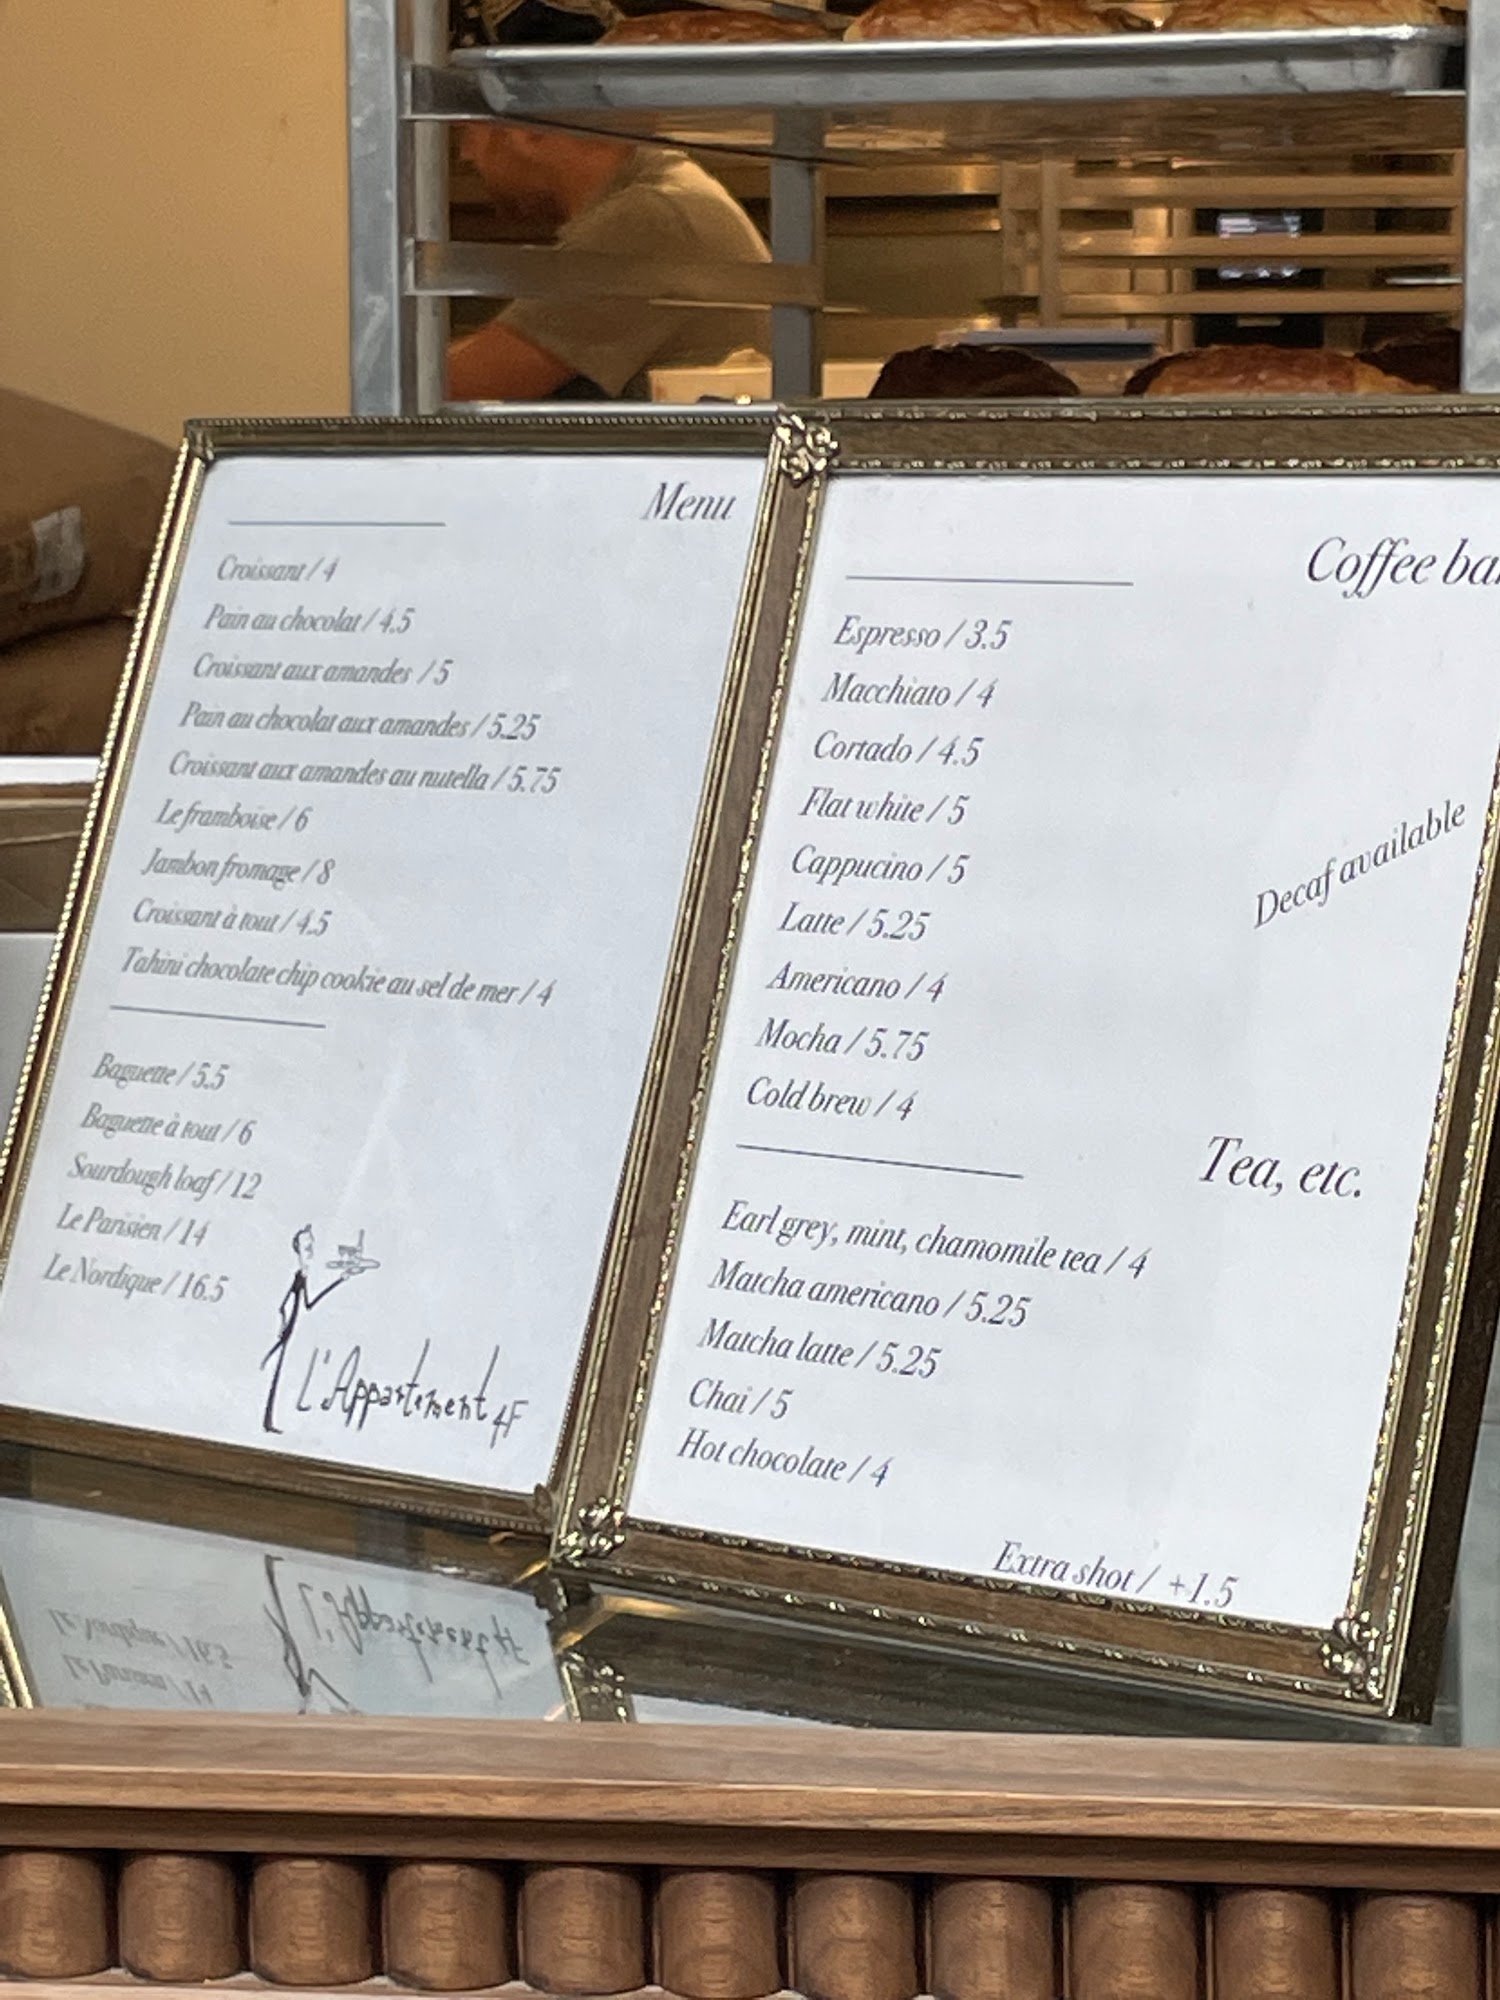 Menu
Croissant / 4
Pain au chocolat / 4.5
Croissant aux amandes / 5
Pain au chocolat aux amandes / 5.25
Croissant aux amandes au nutella / 5.75
Le framboise / 6
Jambon fromage / 8
Croissant à tout / 4.5
Tahini chocolate chip cookie au sel de mer / 4
Baguette / 5.5
Baguette à tout / 6
Sourdough loaf / 12
Le Parisien / 14
Le Nordique / 16.5
L'Appartement 4F
Coffee bar
Espresso / 3.5
Macchiato / 4
Cortado / 4.5
Flat white / 5
Cappucino / 5
Latte / 5.25
Americano / 4
Mocha / 5.75
Cold brew / 4
Decaf available
Tea, etc.
Earl grey, mint, chamomile tea / 4
Matcha americano / 5.25
Matcha latte / 5.25
Chai / 5
Hot chocolate / 4
Extra shot / +1.5